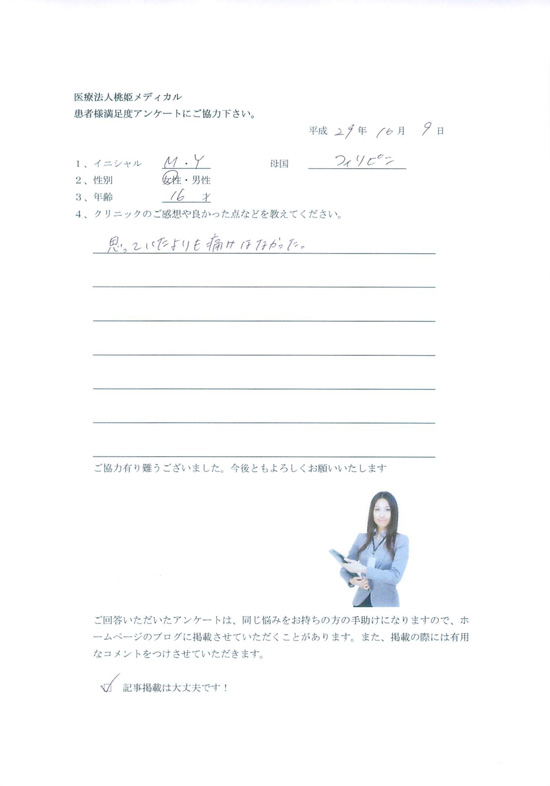 医療法人桃姫メディカル
患者様満足度アンケートにご協力下さい。
平成 29 年 10 月 9 日
1、イニシャル M・Y 母国 フィリピン
2、性別 女性・男性
3、年齢 16 才
4、クリニックのご感想や良かった点などを教えてください。
思っていたよりも痛けはなかった。
ご協力有り難うございました。今後ともよろしくお願いいたします
ご回答いただいたアンケートは、同じ悩みをお持ちの方の手助けになりますので、ホ
ームページのブログに掲載させていただくことがあります。また、掲載の際には有用
なコメントをつけさせていただきます。
記事掲載は大丈夫です！